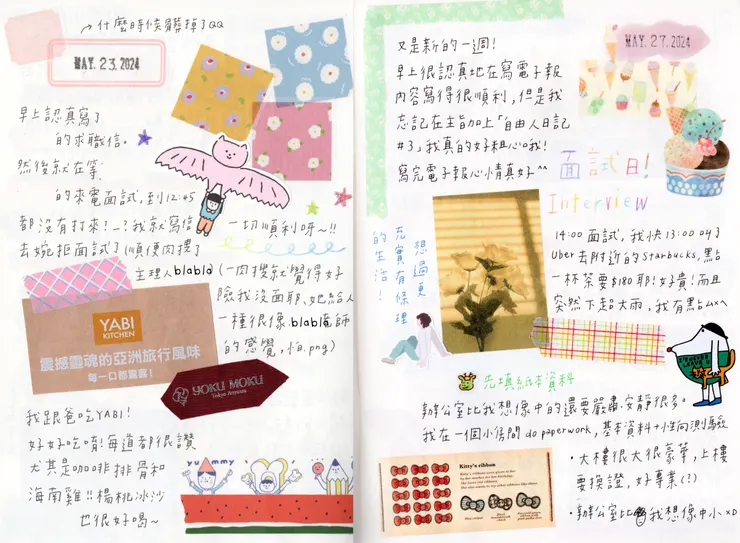 什麼時候髒掉了QQ
MAY. 23. 2024
早上認真寫了
的求職信。
然後就在等
的來電面試,到12:45
都沒有打來!-?我就寫信
去婉拒面試了(順便肉搜了
一切順利呀~!!
主理人blabla(一肉搜就覺得好
險我沒面耶、她給人
一種很像.blabla魔師
的感覺,怕.png)
YABI
KITCHEN
震撼靈魂的亞洲旅行風味
每一口都驚喜!
YOKU MOKU
Tokyo Aoyama
我跟爸吃YABI!
好好吃唷!每道都很讚
尤其是咖啡排骨和
海南雞!!楊桃冰沙
也很好喝~
yummy
MAY. 27. 2024
又是新的一週!
早上很認真地在寫電子報
內容寫得很順利,但是我
忘記在主旨加上「自由人日記
#3」我真的好粗心哦!
寫完電子報心情真好^^
面試日!
Interview
想過更
充實有條理
的生活!
14:00面試,我快13:00叫了
Uber去附近的Starbucks,點
一杯茶要$180耶!好貴!而且
突然下超大雨,我有點ムメヘ
先填紙本資料
辦公室比我想像中的還要嚴肅、安靜很多。
我在一個小房間do paperwork,基本資料+性向測驗
・大樓很大很豪華,上樓
要換證,好專業(?)
・辦公室比我想像中小XD
Kitty's ribbon